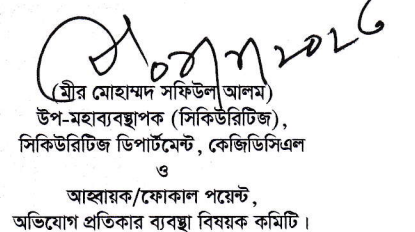 (মীর মোহাম্মদ সফিউল আলম)
উপ-মহাব্যবস্থাপক (সিকিউরিটিজ),
সিকিউরিটিজ ডিপার্টমেন্ট, কেজিডিসিএল
ও
আহ্বায়ক/ফোকাল পয়েন্ট,
অভিযোগ প্রতিকার ব্যবস্থা বিষয়ক কমিটি।